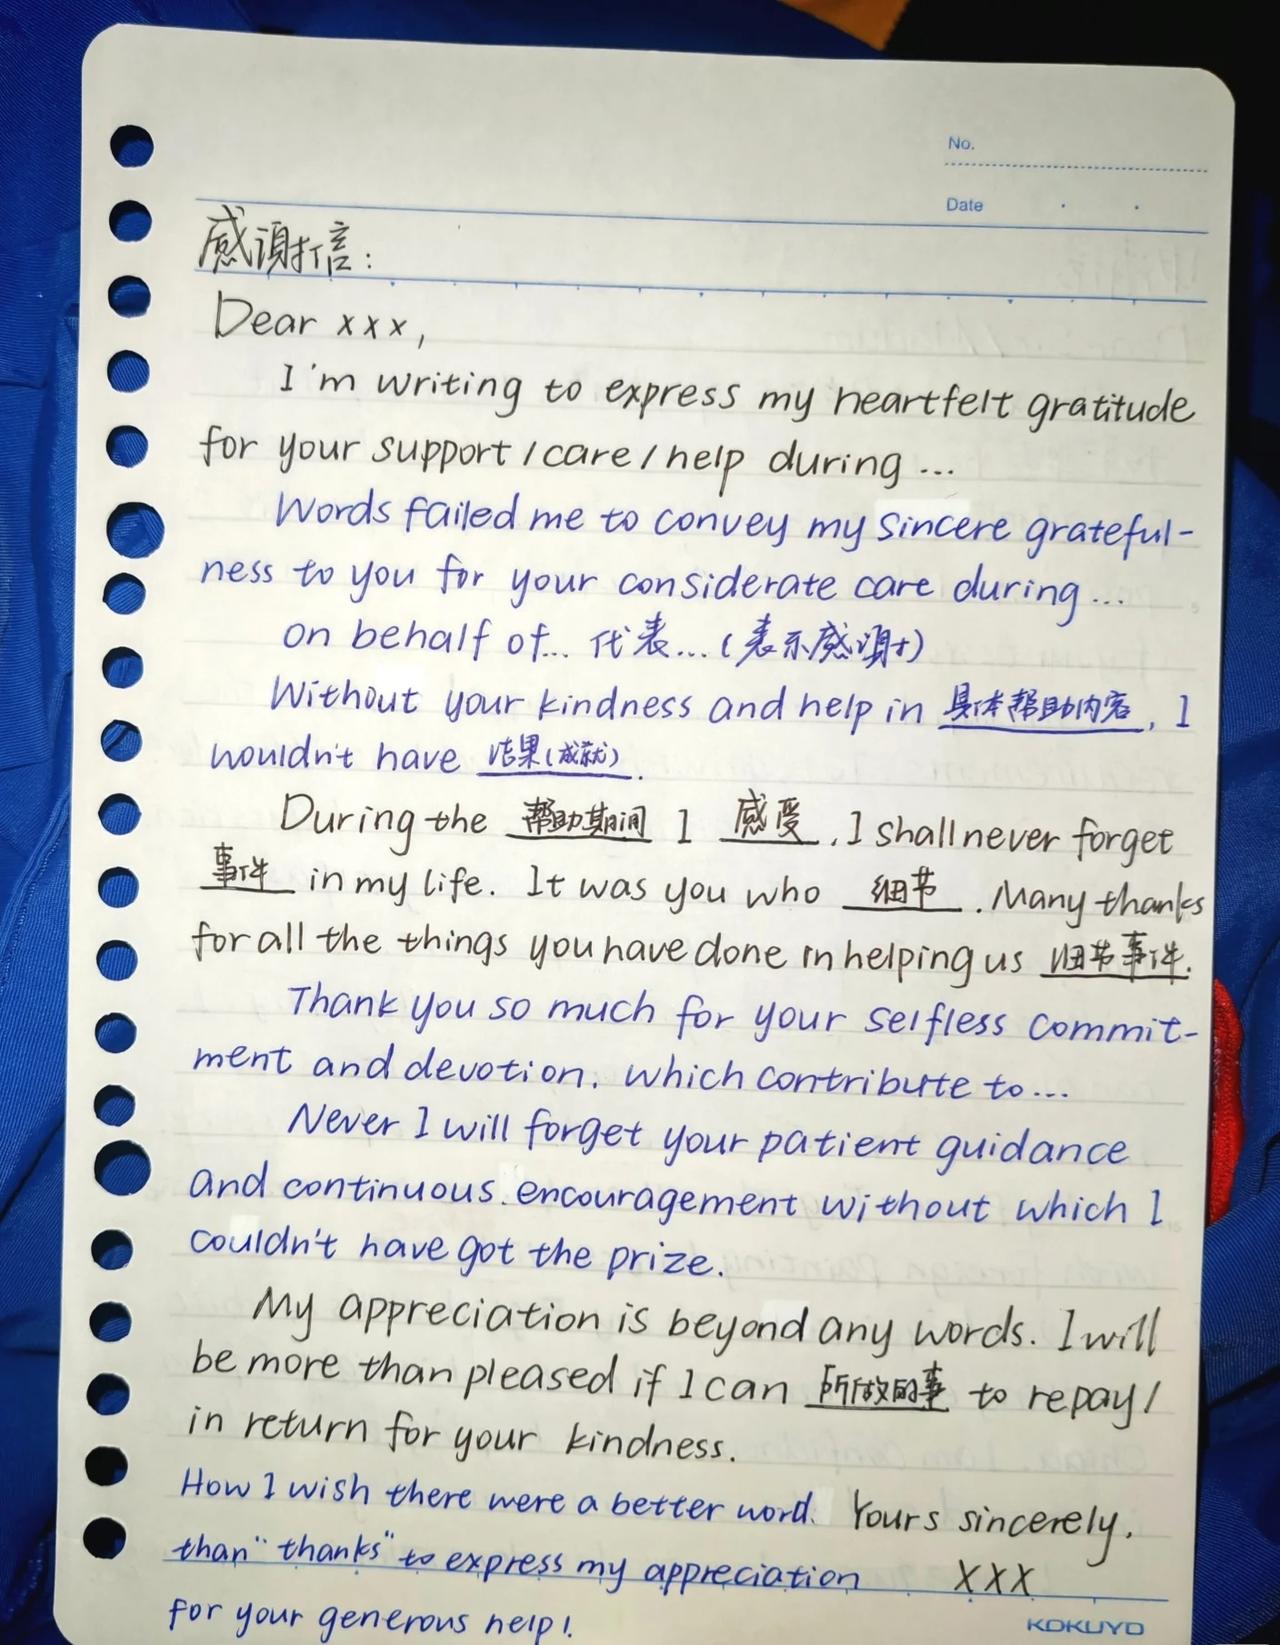 No.
Date
感謝信:
Dear xxx,
I'm writing to express my heartfelt gratitude
for your support/care/help during...
Words failed me to convey my sincere grateful-
ness to you for your considerate care during...
on behalf of... 代表...(表示感謝)
Without your kindness and help in 具体帮助内容, I
wouldn't have 结果(成就).
During the 帮助期间 I 感受. I shall never forget
事件 in my life. It was you who 细节. Many thanks
for all the things you have done in helping us 细节事件.
Thank you so much for your selfless commit-
ment and devotion. which contribute to...
Never I will forget your patient guidance
and continuous encouragement without which I
couldn't have got the prize.
My appreciation is beyond any words. I will
be more than pleased if I can 所做的事 to repay/
in return for your kindness.
How I wish there were a better word. Yours sincerely.
than "thanks" to express my appreciation XXX
for your generous help!
KOKUYO